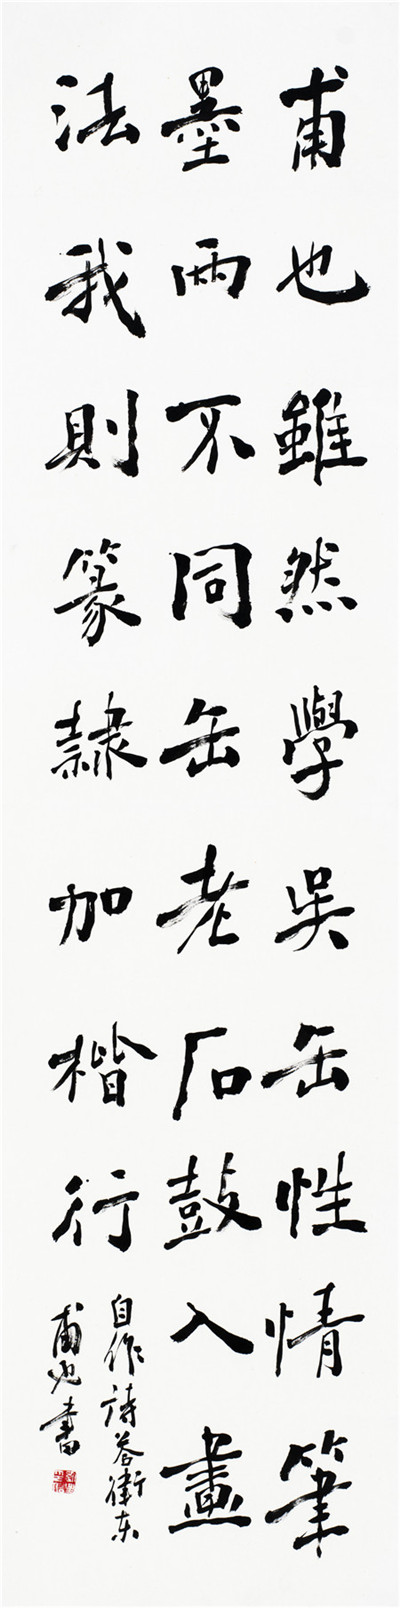 甫也雖然學吳缶性情筆
墨兩不同缶老石鼓入畫
法我則篆隸加楷行
自作詩答衛东
甫也書